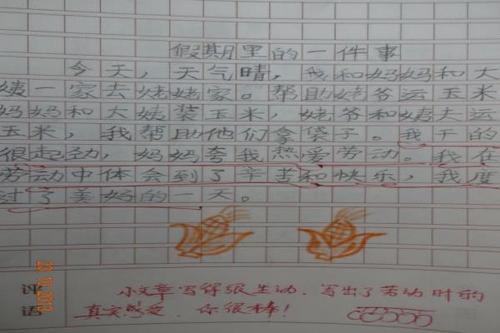 假期里的一件事
今天，天气晴，我和妈妈和大
姨一家去姥姥家。帮助姥爷运玉米
妈妈和大姨装玉米，姥爷和姨夫运
玉米，我帮助他们拿袋子。我干的
很起劲，妈妈夸我热爱劳动。我在
劳动中体会到了辛苦和快乐，我度
过了美好的一天。
评语
小文章写得很生动，写出了劳动时的
真实感受，你很棒！